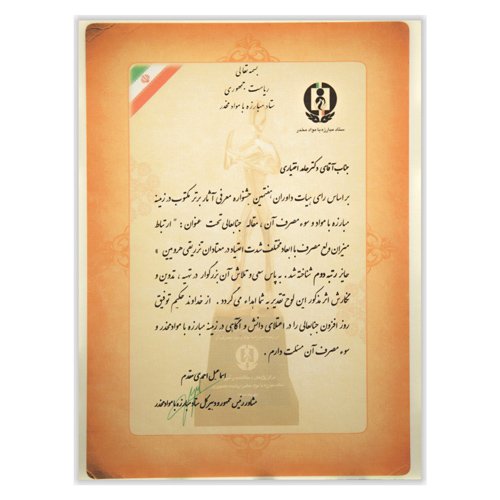 بسمه تعالی
ریاست جمهوری
ستاد مبارزه با مواد مخدر
ستاد مبارزه با مواد مخدر
جناب آقای دکتر حامد اختیاری
بر اساس رای هیات داوران هفتمین جشنواره معرفی آثار برتر مکتوب در زمینه
مبارزه با مواد و سوء مصرف آن ، مقاله جنابعالی تحت عنوان : " ارتباط
میزان ولع مصرف با ابعاد مختلف شدت اعتیاد در معتادان تزریقی هروئین "
حایز رتبه دوم شناخته شد . به پاس سعی و تلاش آن بزرگوار در تهیه ، تدوین و
نگارش اثر مذکور این لوح تقدیر به شما اهداء می گردد . از خداوند حکیم توفیق
روز افزون جنابعالی را در اعتلای دانش و آگاهی در زمینه مبارزه با مواد مخدر و
سوء مصرف آن مسئلت دارم .
اسماعیل احمدی مقدم
مشاور رئیس جمهور و دبیر کل ستاد مبارزه با مواد مخدر